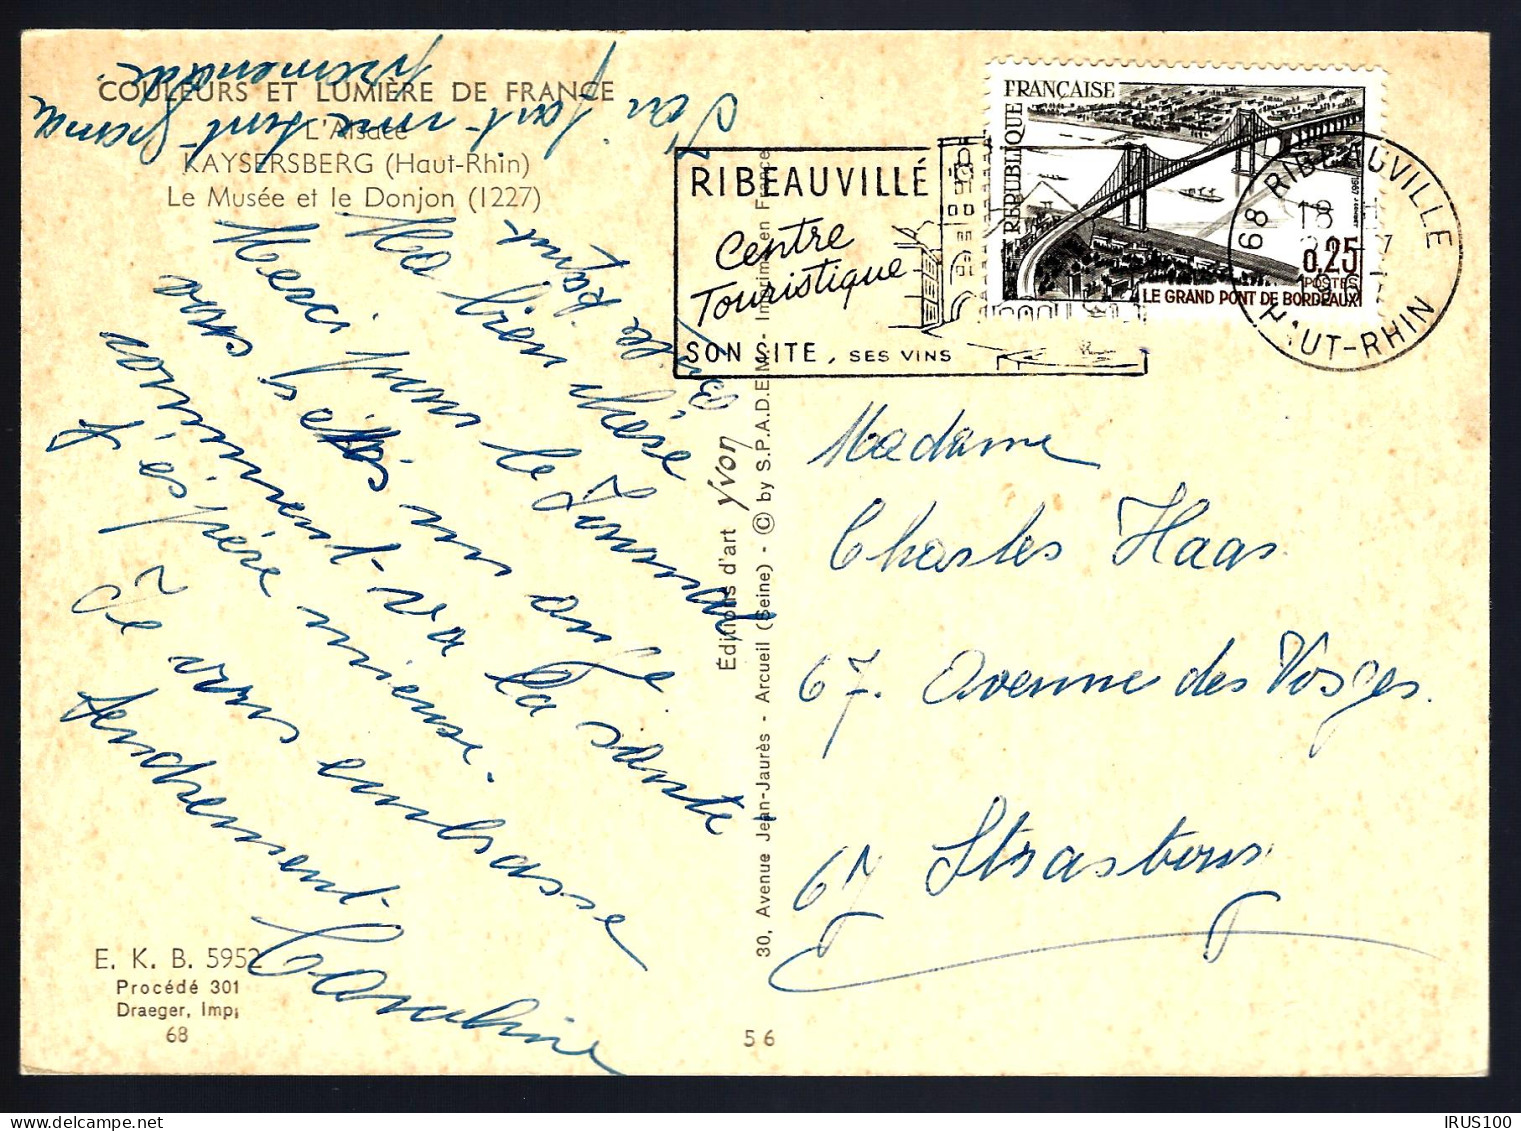 COULEURS ET LUMIÈRE DE FRANCE
L'Alsace
KAYSERSBERG (Haut-Rhin)
Le Musée et le Donjon (1227)
Ma bien chère
Merci pour le Journal
vous
comment va la santé
J'éspère mieuse.
Je vous embrasse
tendrement.
promenade
E. K. B. 5952
Procédé 301
Draeger, Imp.
68
56
Éditions d'art yvon
30, Avenue Jean-Jaurès - Arcueil (Seine) - © by S.P.A.D.E.M. - Imprimé en France
RIBEAUVILLÉ
Centre
Touristique
SON SITE, SES VINS
RÉPUBLIQUE FRANÇAISE
1967
0,25
POSTES
LE GRAND PONT DE BORDEAUX
68 RIBEAUVILLE
18
HAUT-RHIN
Madame
Charles Haas
67. Avenue des Vosges.
67 Strasbourg
IRUS100